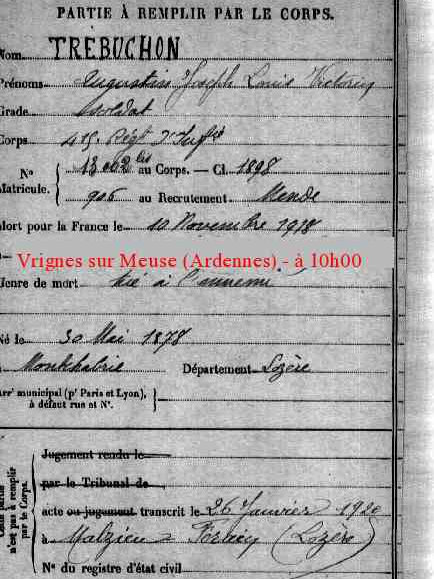 PARTIE À REMPLIR PAR LE CORPS.
Nom TRÉBUCHON
Prénoms Augustin Joseph Louis Victorin
Grade Soldat
Corps 415 Régt d'Infie
N° Matricule. { 13 002 bis au Corps. — Cl. 1898
906 au Recrutement Mende
Mort pour la France le 10 Novembre 1918
à
Vrignes sur Meuse (Ardennes) - à 10h00
Genre de mort tué à l'ennemi
Né le 30 Mai 1878
à Montchabrier Département Lozère
Arr' municipal (p' Paris et Lyon), à défaut rue et N°. }
Jugement rendu le
par le Tribunal de
acte ou jugement transcrit le 26 Janvier 1920
à Malzieu Forain (Lozère)
N° du registre d'état civil
n'est pas à remplir par le Corps.